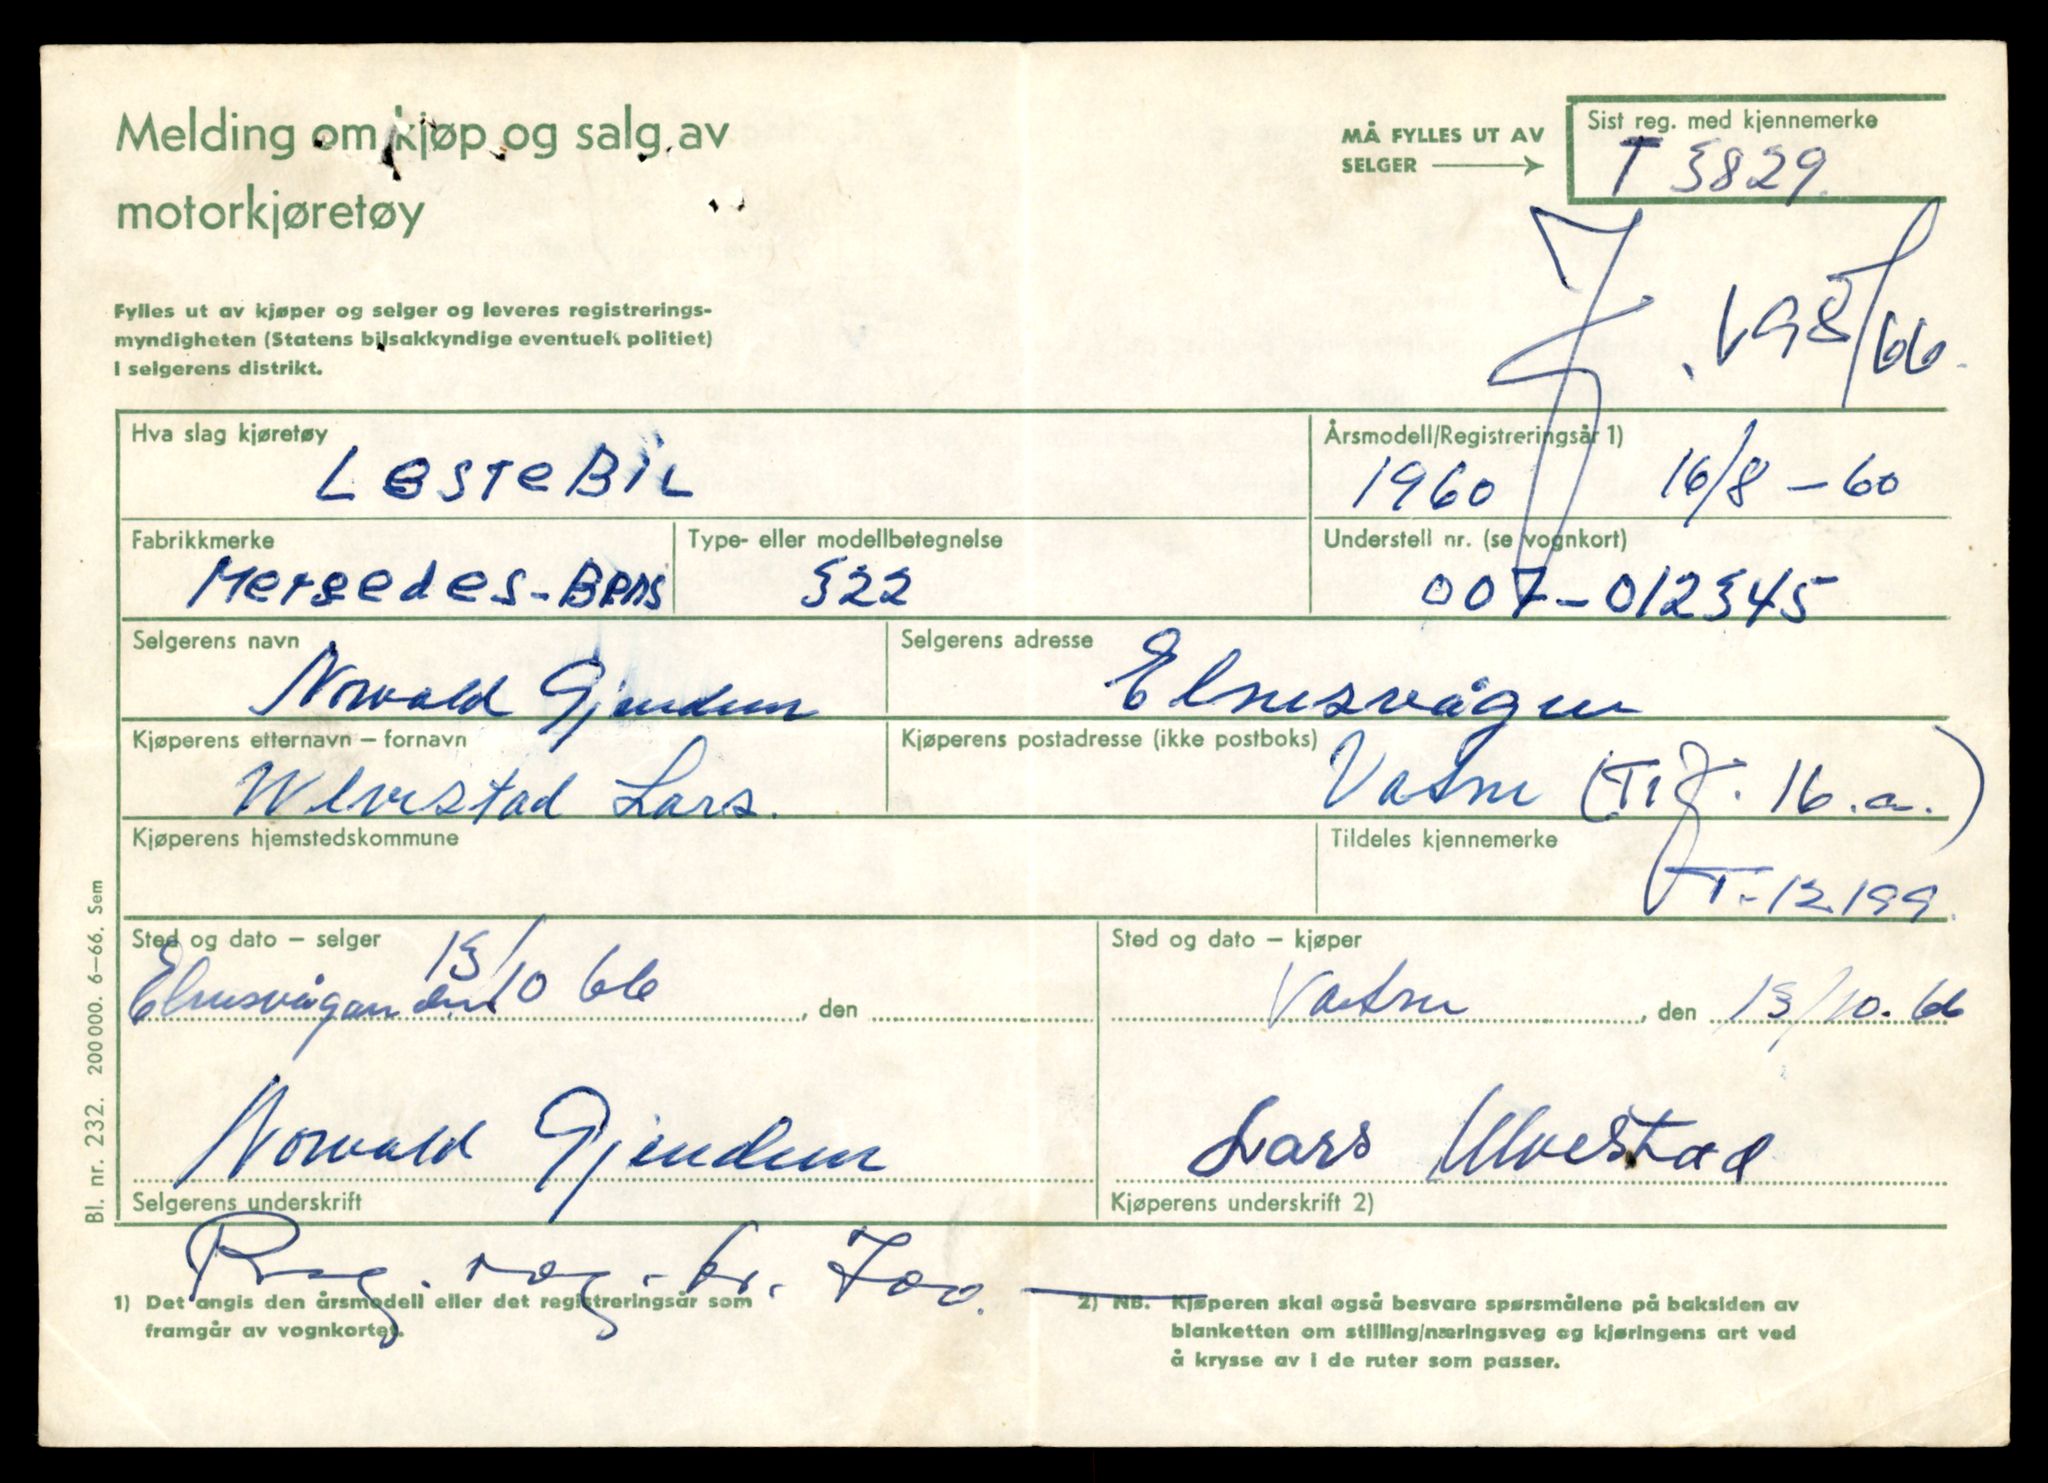 Melding om kjøp og salg av
motorkjøretøy
MÅ FYLLES UT AV
SELGER
Sist reg. med kjennemerke
T 3829.
Fylles ut av kjøper og selger og leveres registrerings-
myndigheten (Statens bilsakkyndige eventuelt politiet)
i selgerens distrikt.
Hva slag kjøretøy
LasteBiL
Årsmodell/Registreringsår 1)
1960 16/8 - 60
Fabrikkmerke
Mersedes-Bens
Type- eller modellbetegnelse
322
Understell nr. (se vognkort)
007-012345
Selgerens navn
Norvald Gjendem
Selgerens adresse
Elnesvågen
Kjøperens etternavn – fornavn
Ulvestad Lars.
Kjøperens postadresse (ikke postboks)
Vatne 16.a.)
Kjøperens hjemstedskommune
Tildeles kjennemerke
T-12199.
Sted og dato – selger
Elnesvågen den 13/10 66 , den
Sted og dato – kjøper
Vatne , den 13/10. 66
Norvald Gjendem
Selgerens underskrift
Lars Ulvestad
Kjøperens underskrift 2)
Reg. kr. 700.—
1) Det angis den årsmodell eller det registreringsår som
framgår av vognkortet.
2) NB. Kjøperen skal også besvare spørsmålene på baksiden av
blanketten om stilling/næringsveg og kjøringens art ved
å krysse av i de ruter som passer.
Bl. nr. 232. 200 000. 6–66. Sem